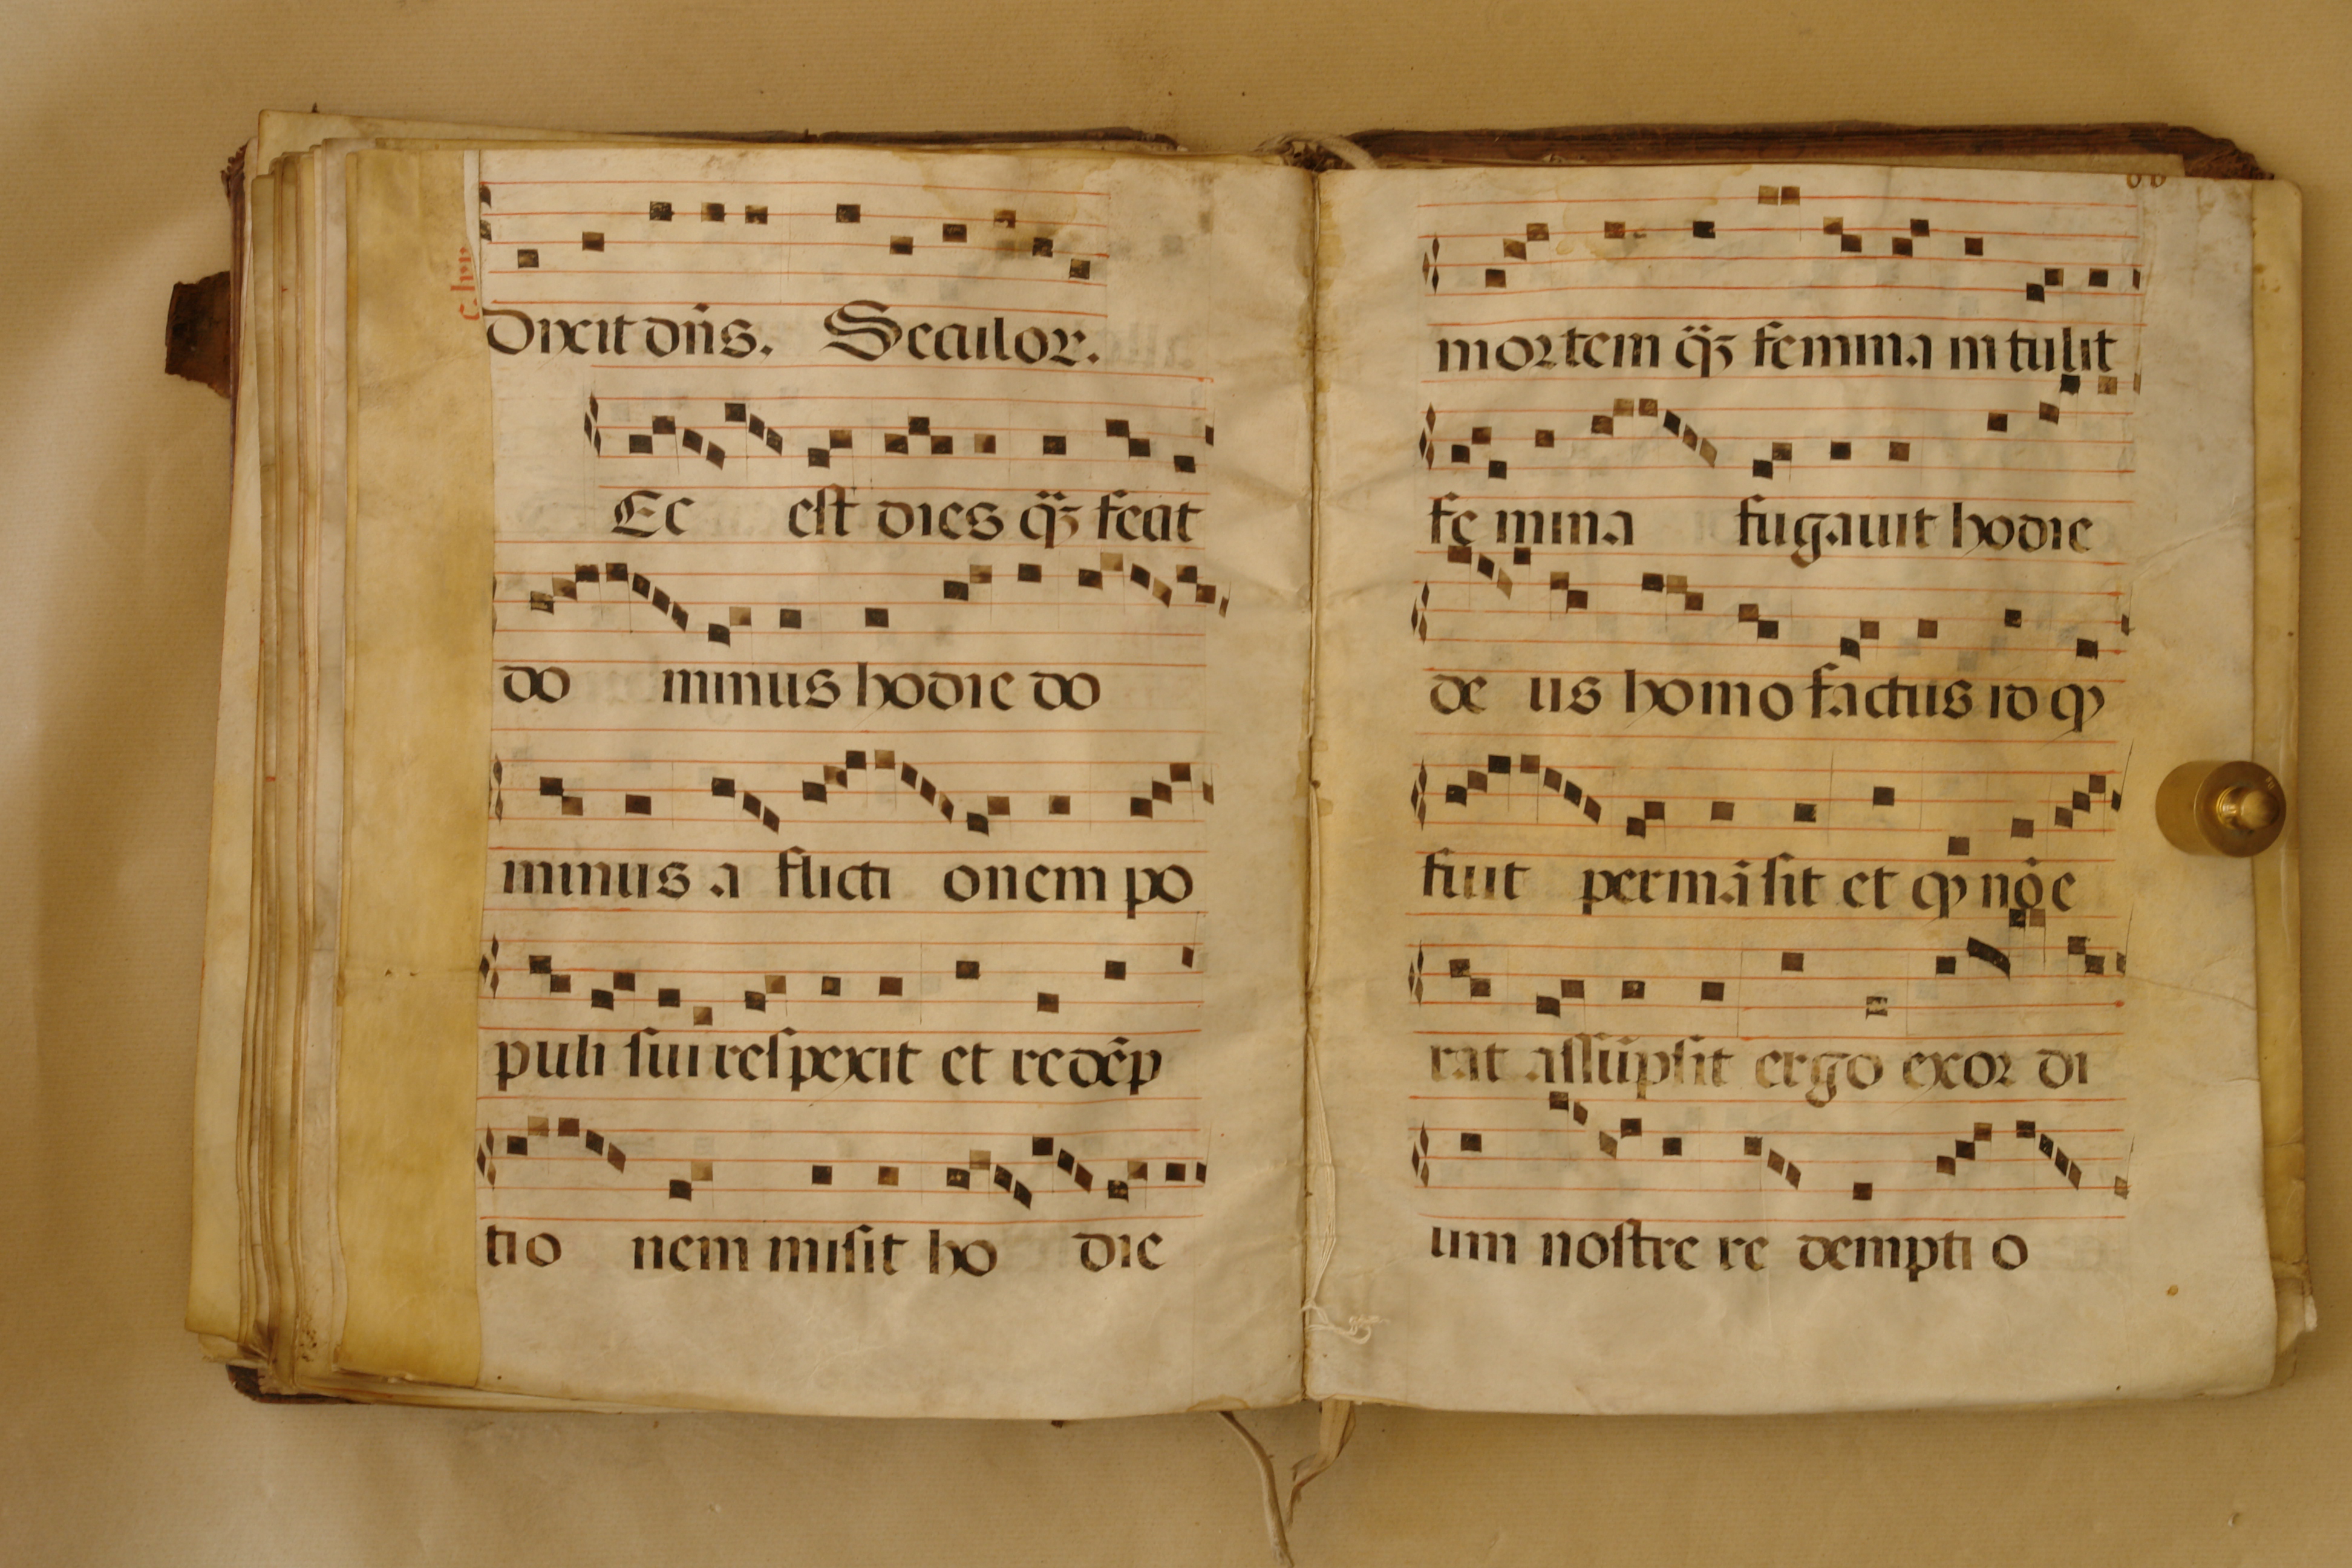 Dixit dn̄s. Seculor.
Ec est dies q̄ȝ fecit
do minus hodie do
minus a flicti onem po
puli sui respexit et redēp
tio nem misit ho die
mortem q̄ȝ femina in tulit
fe mina fugauit hodie
de us homo factus id ꝙ
fuit permāsit et ꝙ nō e
rat assūpsit ergo exor di
um nostre re dempti o